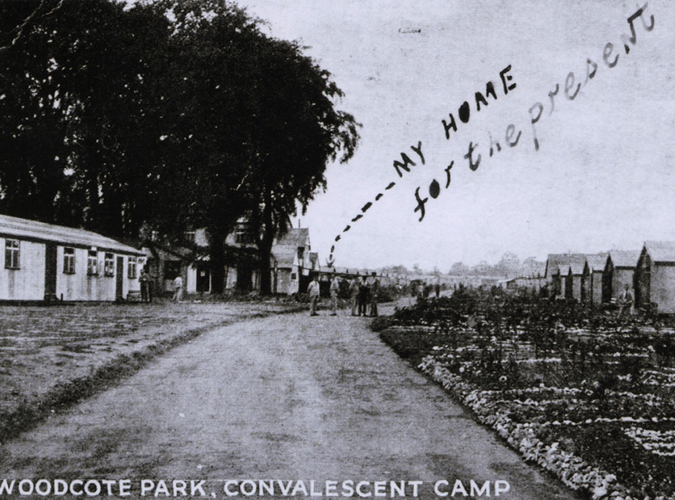 MY HOME
for the present
WOODCOTE PARK, CONVALESCENT CAMP